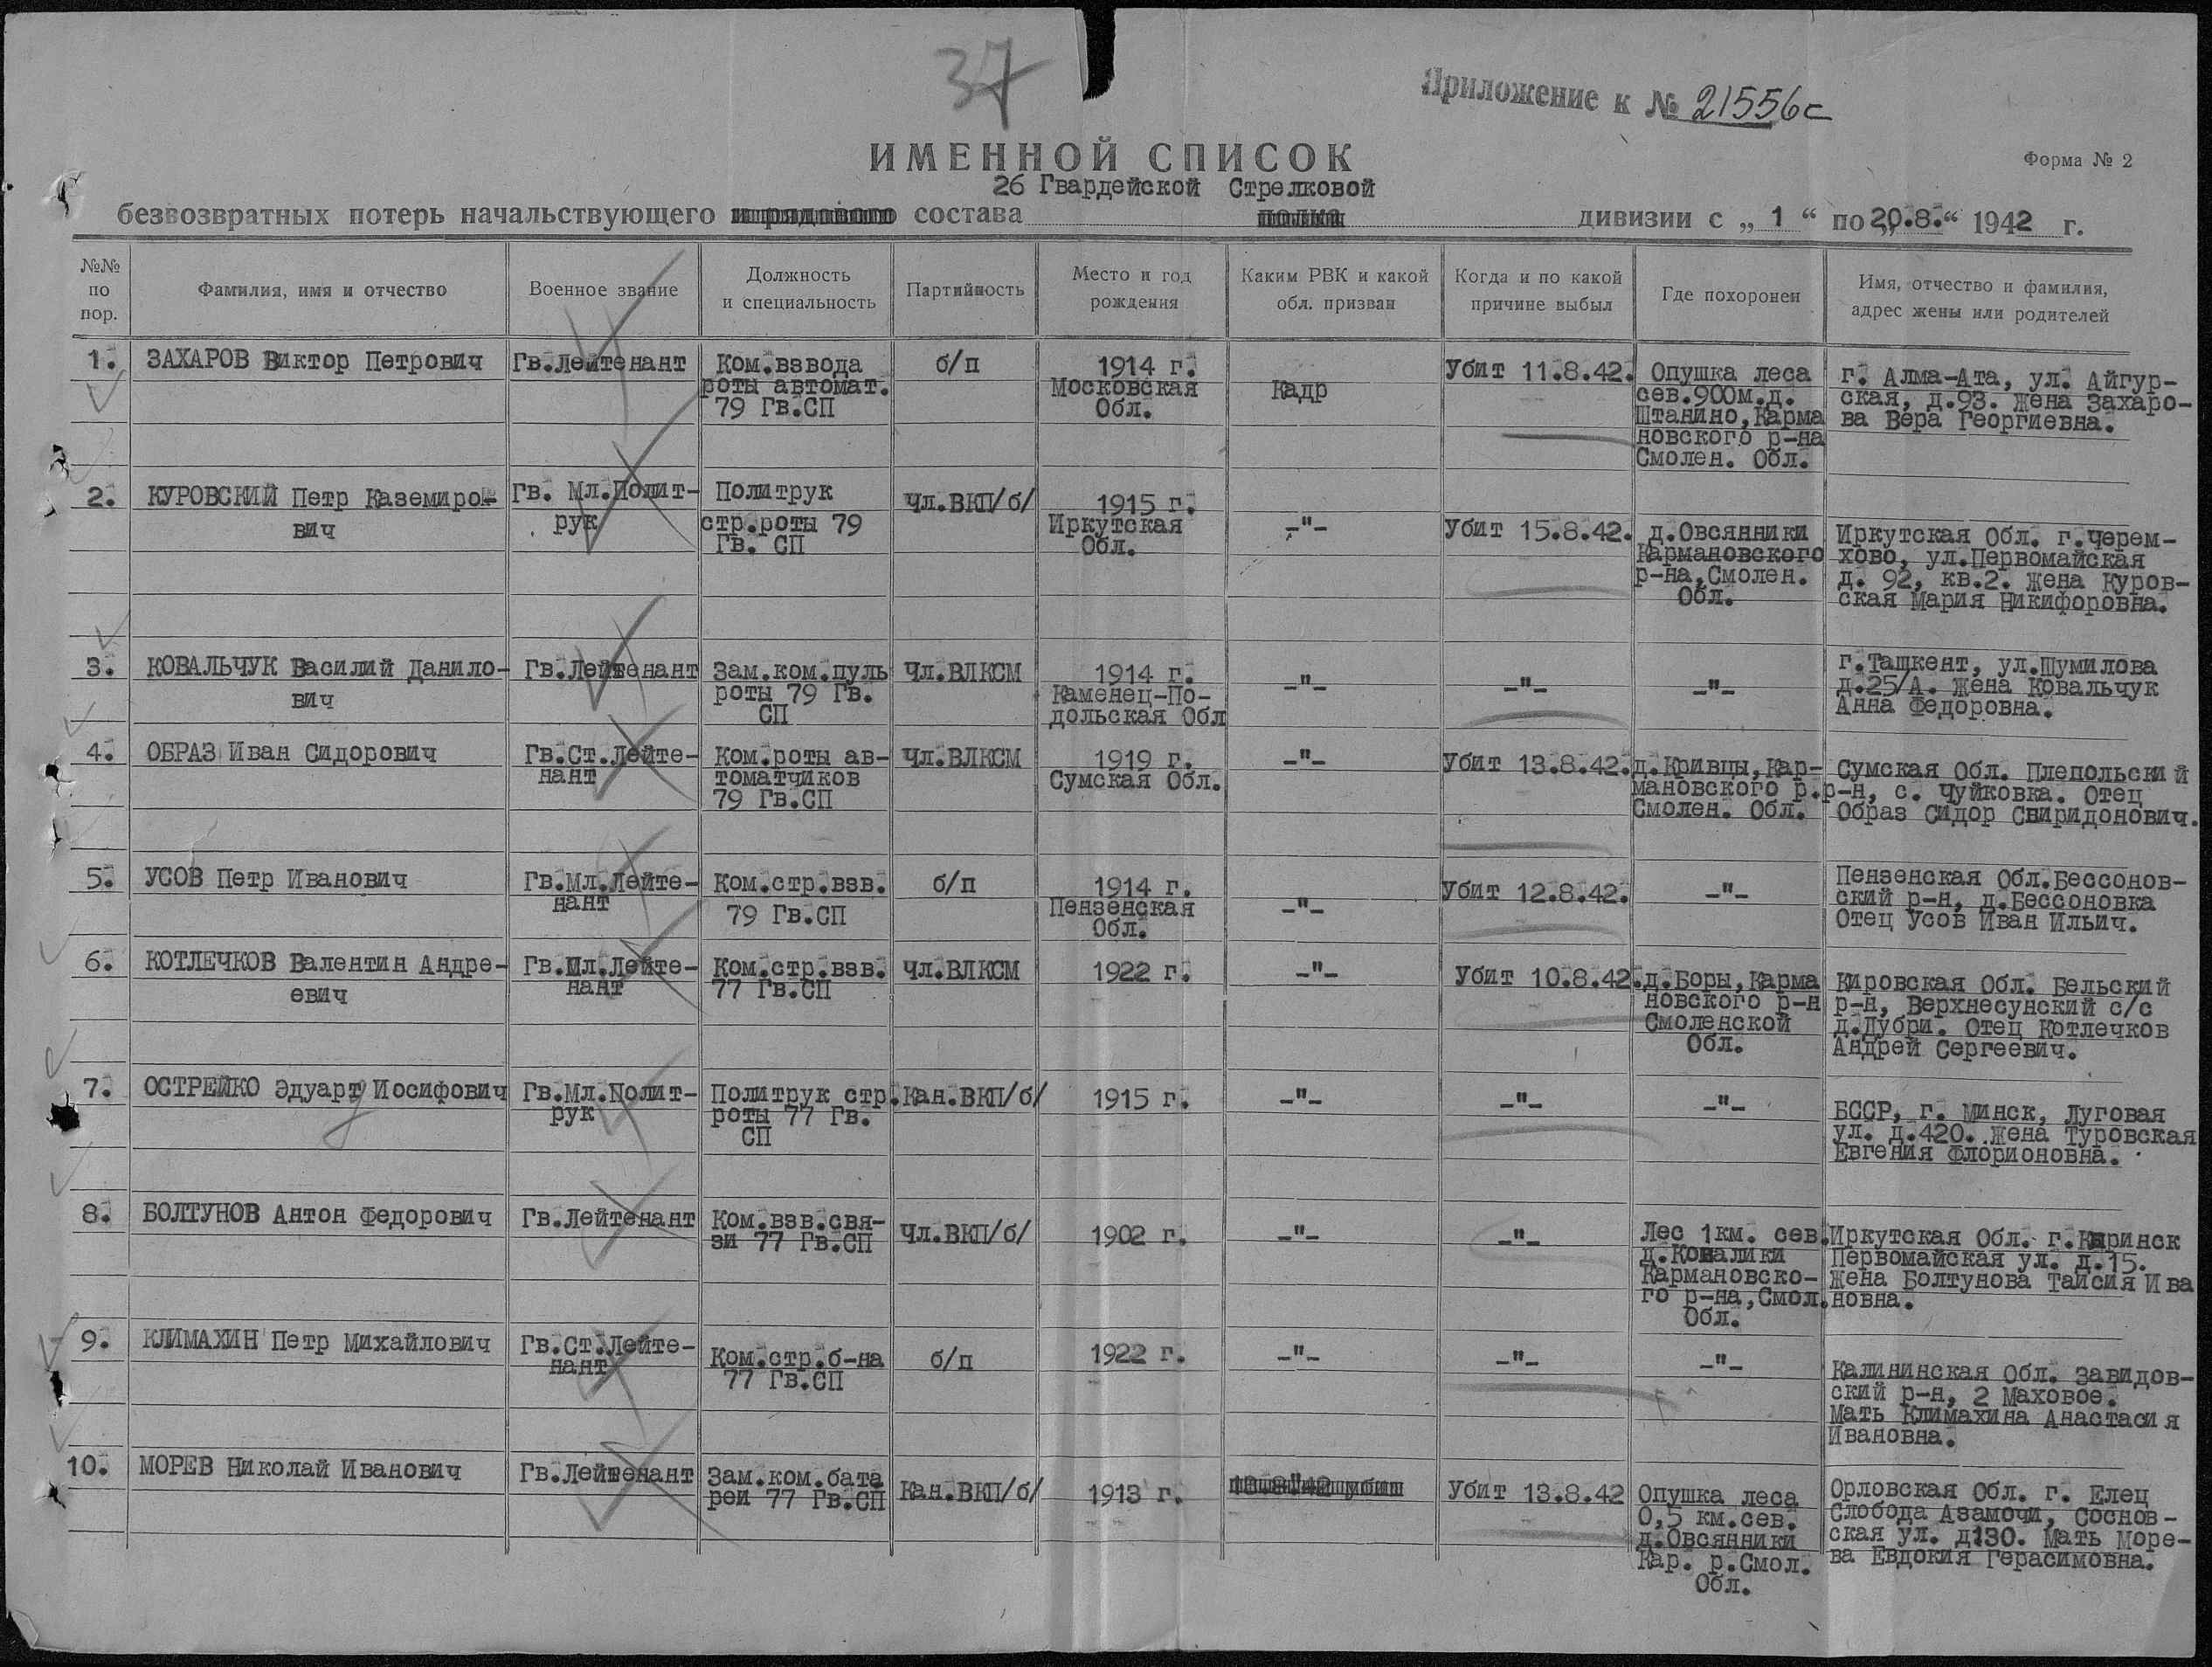 37
Приложение к № 21556с
ИМЕННОЙ СПИСОК
Форма № 2
26 Гвардейской Стрелковой
безвозвратных потерь начальствующего и рядового состава полка дивизии с „ 1 “ по „20.8.“ 1942 г.
№№ по пор.
Фамилия, имя и отчество
Военное звание
Должность и специальность
Партийность
Место и год рождения
Каким РВК и какой обл. призван
Когда и по какой причине выбыл
Где похоронен
Имя, отчество и фамилия, адрес жены или родителей
1.
ЗАХАРОВ Виктор Петрович
Гв.Лейтенант
Ком.взвода
роты автомат.
79 Гв.СП
б/п
1914 г.
Московская
Обл.
Кадр
Убит 11.8.42.
Опушка леса
сев.900м.д.
Штанино, Карма
новского р-на
Смолен. Обл.
г. Алма-Ата, ул. Айгур-
ская, д.93. Жена Захаро-
ва Вера Георгиевна.
2.
КУРОВСКИЙ Петр Каземиро-
вич
Гв. Мл.Полит-
рук
Политрук
стр.роты 79
Гв. СП
Чл.ВКП/б/
1915 г.
Иркутская
Обл.
-"-
Убит 15.8.42.
д.Овсянники
Кармановского
р-на, Смолен.
Обл.
Иркутская Обл. г.Черем-
хово, ул.Первомайская
д. 92, кв.2. Жена Куров-
ская Мария Никифоровна.
3.
КОВАЛЬЧУК Василий Данило-
вич
Гв.Лейтенант
Зам.ком.пуль
роты 79 Гв.
СП
Чл.ВЛКСМ
1914 г.
Каменец-По-
дольская Обл
-"-
-"-
-"-
г.Ташкент, ул.Шумилова
д.25/А. Жена Ковальчук
Анна Федоровна.
4.
ОБРАЗ Иван Сидорович
Гв.Ст.Лейте-
нант
Ком.роты ав-
томатчиков
79 Гв.СП
Чл.ВЛКСМ
1919 г.
Сумская Обл.
-"-
Убит 13.8.42.
д.Кривцы, Кар-
мановского р.
Смолен. Обл.
Сумская Обл. Плепольский
р-н, с. Чуйковка. Отец
Образ Сидор Свиридонович.
5.
УСОВ Петр Иванович
Гв.Мл.Лейте-
нант
Ком.стр.взв.
79 Гв.СП
б/п
1914 г.
Пензенская
Обл.
-"-
Убит 12.8.42.
-"-
Пензенская Обл.Бессонов-
ский р-н, д.Бессоновка
Отец Усов Иван Ильич.
6.
КОТЛЕЧКОВ Валентин Андре-
евич
Гв.Мл.Лейте-
нант
Ком.стр.взв.
77 Гв.СП
Чл.ВЛКСМ
1922 г.
-"-
Убит 10.8.42.
д.Боры, Карма
новского р-н
Смоленской
Обл.
Кировская Обл. Бельский
р-н, Верхнесунский с/с
д.Дубри. Отец Котлечков
Андрей Сергеевич.
7.
ОСТРЕЙКО Эдуарт Иосифович
д
Гв.Мл.Полит-
рук
Политрук стр.
роты 77 Гв.
СП
Кан.ВКП/б/
1915 г.
-"-
-"-
-"-
БССР, г. Минск, Луговая
ул. д.420. Жена Туровская
Евгения Флорионовна.
8.
БОЛТУНОВ Антон Федорович
Гв.Лейтенант
Ком.взв.свя-
зи 77 Гв.СП
Чл.ВКП/б/
1902 г.
-"-
-"-
Лес 1км. сев.
д.Ковалики
Кармановско-
го р-на, Смол.
Обл.
Иркутская Обл. г.Киринск
Первомайская ул. д.15.
Жена Болтунова Таисия Ива
новна.
9.
КЛИМАХИН Петр Михайлович
Гв.Ст.Лейте-
нант
Ком.стр.б-на
77 Гв.СП
б/п
1922 г.
-"-
-"-
-"-
Калининская Обл. Завидов-
ский р-н, 2 Маховое.
Мать Климахина Анастасия
Ивановна.
10.
МОРЕВ Николай Иванович
Гв.Лейтенант
Зам.ком.бата
реи 77 Гв.СП
Кан.ВКП/б/
1913 г.
-"-
Убит 13.8.42
Опушка леса
0,5 км.сев.
д.Овсянники
Кар. р.Смол.
Обл.
Орловская Обл. г. Елец
Слобода Азамочи, Соснов-
ская ул. д130. Мать Море-
ва Евдокия Герасимовна.